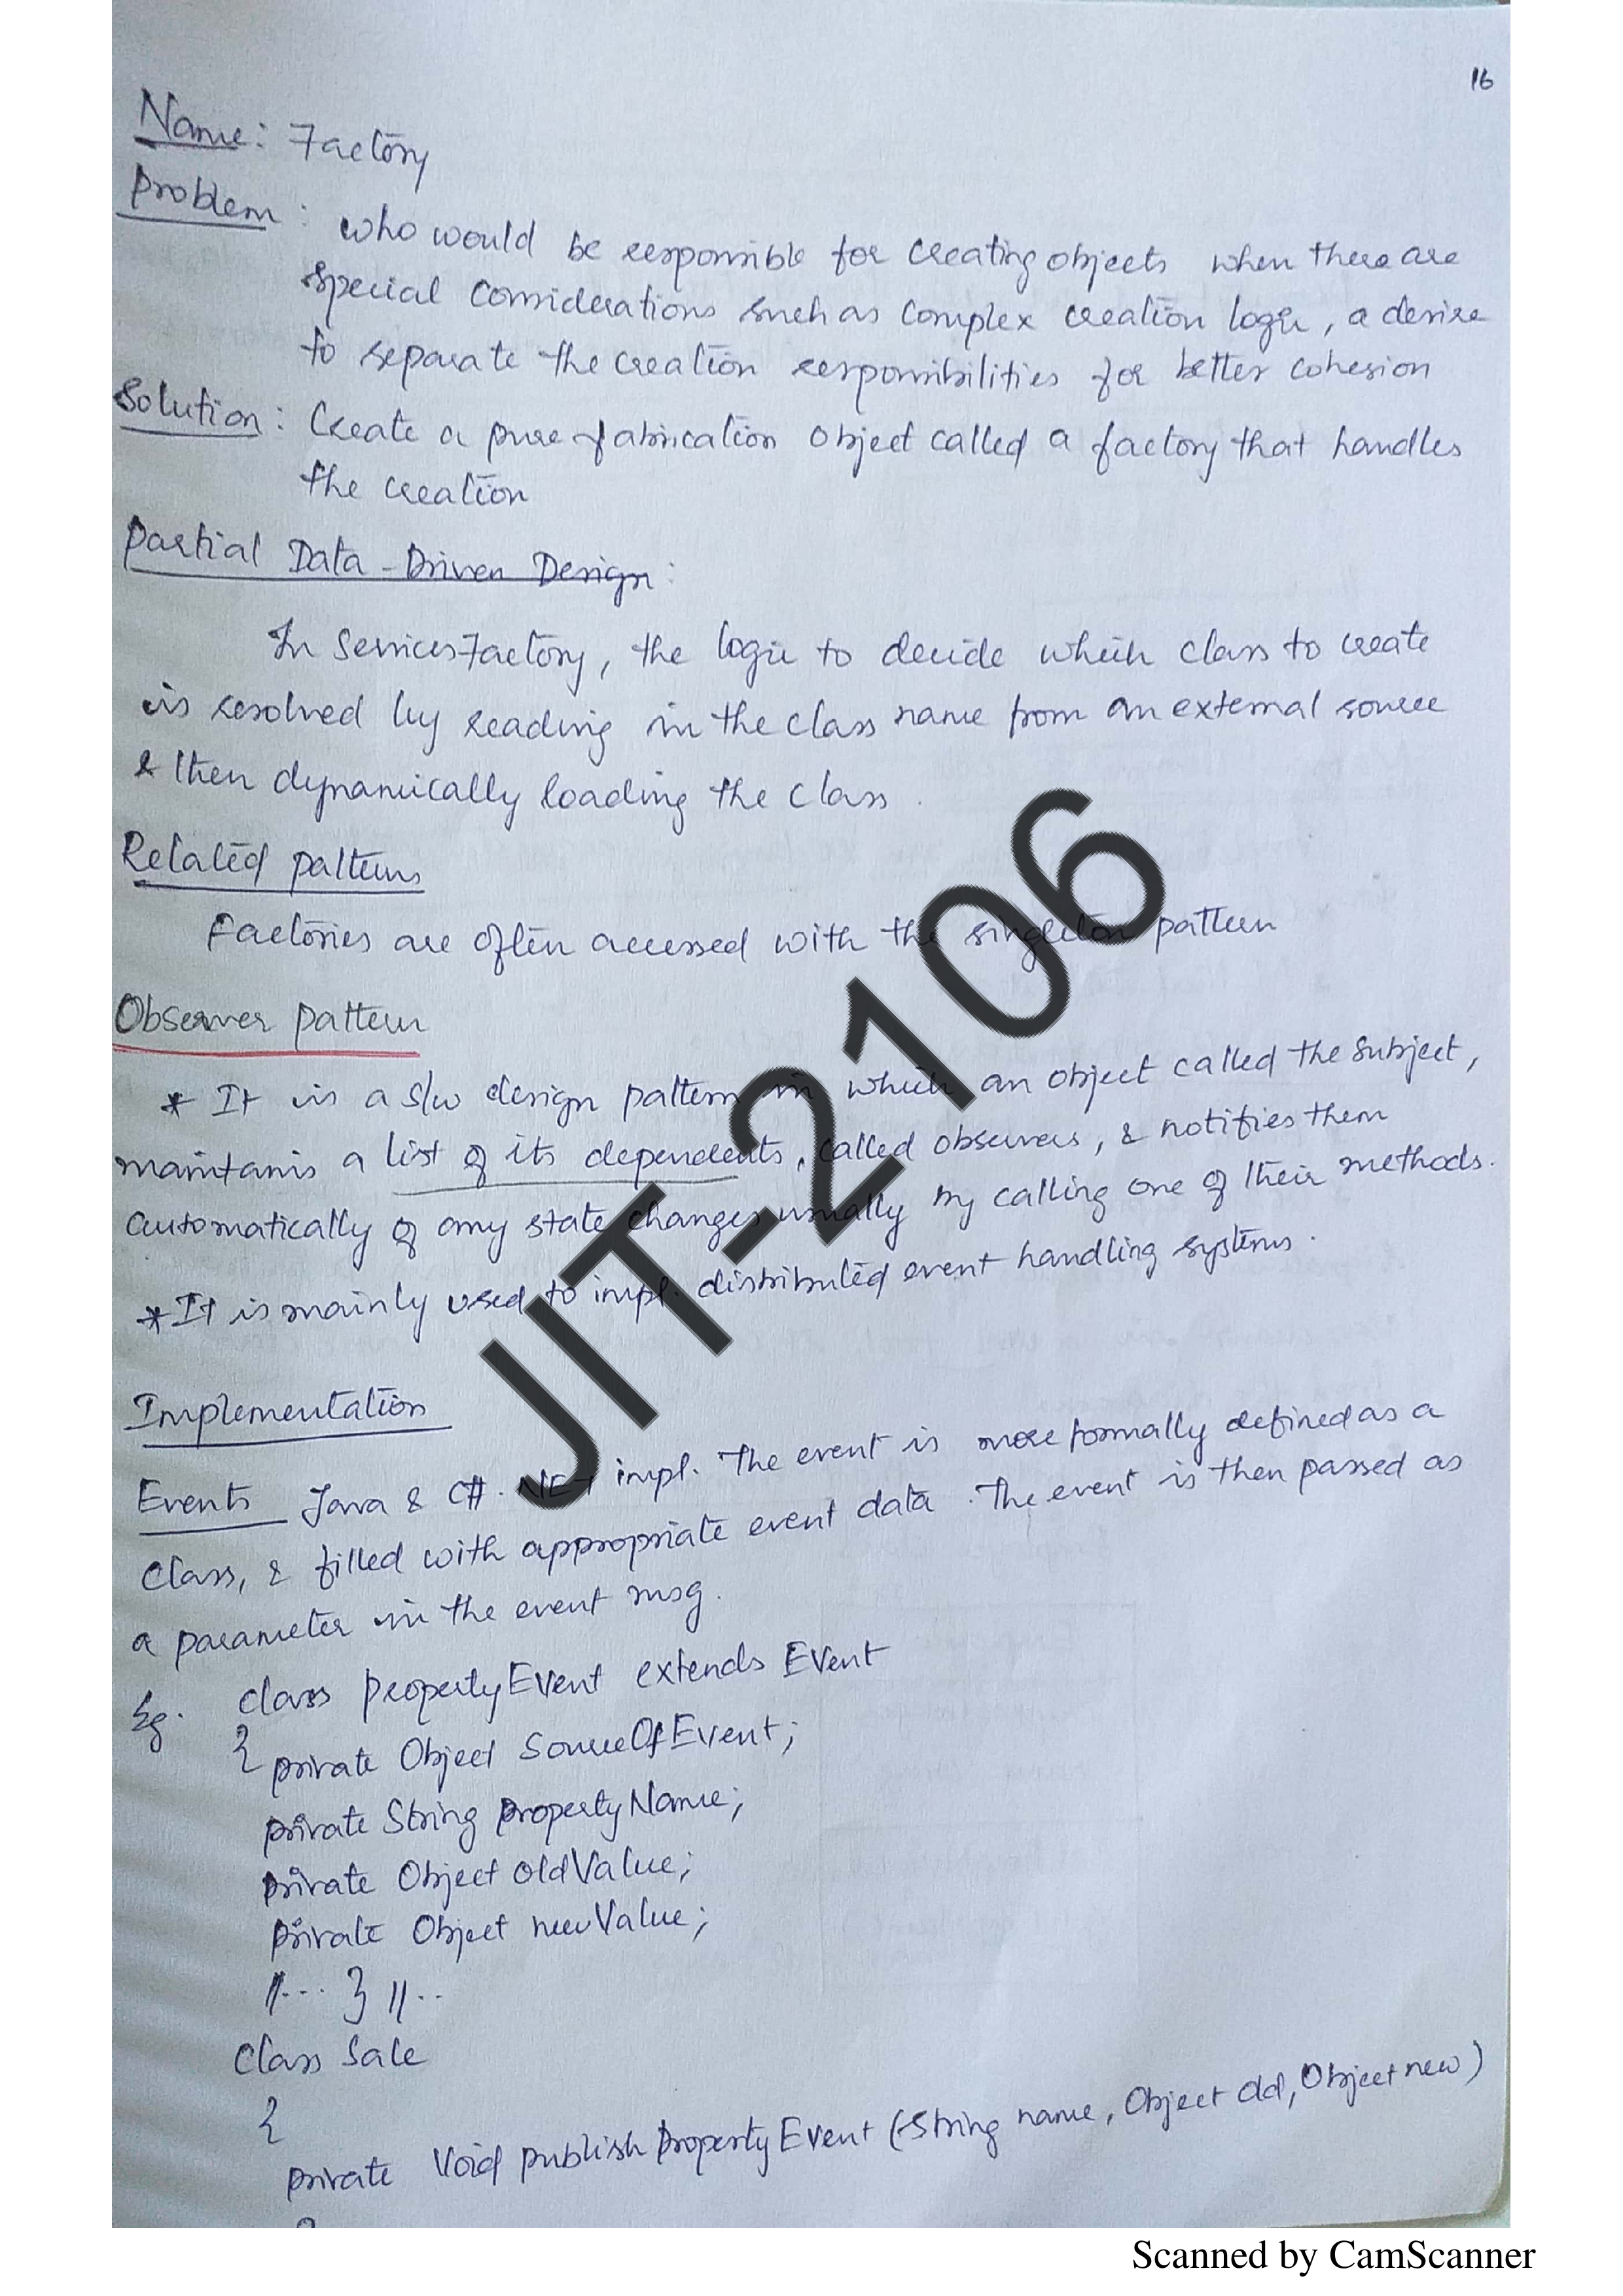 16
Name: Factory
Problem: who would be responsible for creating objects when there are
special considerations such as complex creation logic, a desire
to separate the creation responsibilities for better cohesion
Solution: Create a pure fabrication object called a factory that handles
the creation
Partial Data-Driven Design:
In ServicesFactory, the logic to decide which class to create
is resolved by reading in the class name from an external source
& then dynamically loading the class.
Related patterns
Factories are often accessed with the singleton pattern
Observer pattern
* It is a s/w design pattern in which an object called the subject,
maintains a list of its dependents, called observers, & notifies them
automatically of any state changes usually by calling one of their methods.
* It is mainly used to impl. distributed event handling systems.
Implementation
Events Java & C#.NET impl. The event is more formally defined as a
class, & filled with appropriate event data. The event is then passed as
a parameter in the event msg.
Eg. class PropertyEvent extends Event
{ private Object SourceOfEvent;
private String PropertyName;
private Object oldValue;
private Object newValue;
//... } //..
Class Sale
{
private void publishPropertyEvent (String name, Object old, Object new)
{
JIT-2106
Scanned by CamScanner